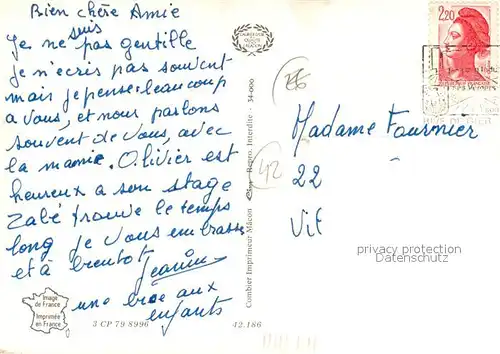 Bien chère Amie
suis
Je ne pas gentille
Je n'ecris pas souvent
mais je pense beaucoup
a vous, et nous, parlons
souvent de vous, avec
la mamie. Olivier est
heureux a son stage
Zabé trouve le temps
long je vous embrasse
et a bientot
Jeanine
une bise aux
enfants
Image
de France
Imprimée
en France
3 CP 79 8996
42.186
Combier Imprimeur Mâcon
Repro. Interdite - 34-000
42
2,20
Madame Fournier
22
Vif
privacy protection
Datenschutz